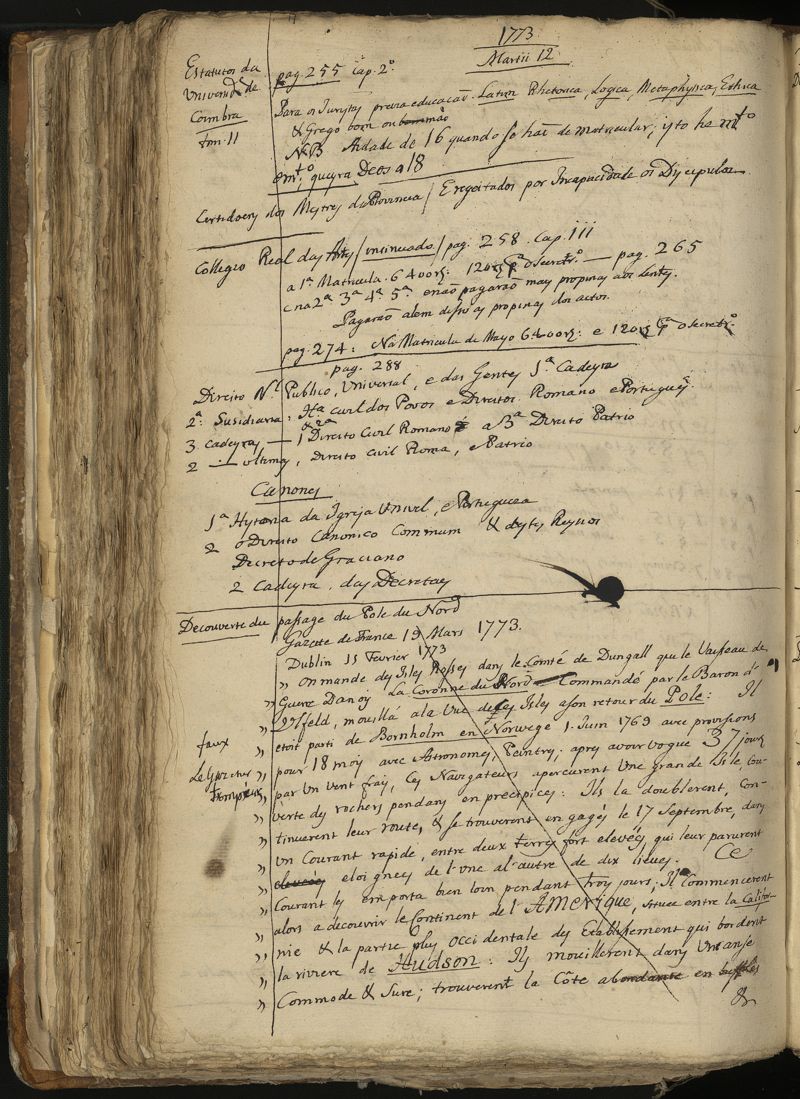 1773
Martii 12
Estatutos da
Universid.e de
Coimbra
tom. II
pag. 255 Cap. 2.º
Para os Juristas previa educação. Latim Rhetorica, Logica, Metaphysica, Ethica
& Grego bom ou
NB Aidade de 16 quando se haõ de matricular; isto he m.to
e m.to queyra Deos a 18
Certidoens dos Mestres da Provincia / Eregeitados por Incapacidade os Discipulos
Collegio Real das Artes / insinuado / pag. 258. Cap. III
a 1ª Matricula. 6400rs: 120rs p.ª o secretr.º — pag. 265
e na 2ª 3ª 4ª 5ª e naõ pagaraõ mays propinas aos lentes.
Pagaraõ alem disso as propinas dos actos.
pag. 274: Na Matricula de Mayo 6400rs: e 120rs p.ª o secretr.º
pag. 288
Direito N.l Publico, Universal, e das Gentes 1ª Cadeyra
2ª Susidiaria: Hª civil dos Povos e Direitos. Romano e Portugues.
3 cadeyras — 1 & 2ª Direito Civil Romano & a 3ª Direito Patrio
2 — ultimas, Direito civil Roma, e Patrio
Canones
1ª Hystoria da Igreja Univel, e Portugueza
2 o Direito Canonico Commum & destes Reynos
Decreto de Graciano
2 Cadeyra, das Decretaes
Decouverte du passage du Pole du Nord
Gazette de France 19 Mars 1773.
Dublin 15 Fevrier 1773
" On mande des Isles Rosses dans le Comté de Dungall que le Vaisseau de
" Guerre Danois La Coronne du Nord Commandé par le Baron d'
" Ulfeld, mouilla a la Vue de ces Isles a son retour du Pole: Il
" etoit parti de Bornholm en Norwege 1. Juin 1769 avec provisions
faux
" pour 18 mois avec Astronomes, Peintres, apres avoir vogue 37 jours
" par un vent frais, Ces Navigateurs apercurent Une grande Isle, Cou-
" verte des rochers pendans en precipices: Ils la doublerent, Con-
" tinuerent leur route, & se trouverent engagés le 17 Septembre, dans
" un Courant rapide, entre deux terres fort elevées qui leur parurent
" elevées eloignees de l'une al'autre de dix lieues. Ce
" Courant les emporta bien loin pendant trois jours; Ils commencerent
" alors a decouvrir le Continent de l'AMERIQUE, située entre la Califor-
" nie & la partie plus occidentale des Etablissement qui bordent
" la riviere de Hudson: Ils mouillerent dans Un anse
" Commode & Sure; trouverent la Côte abondante en
&